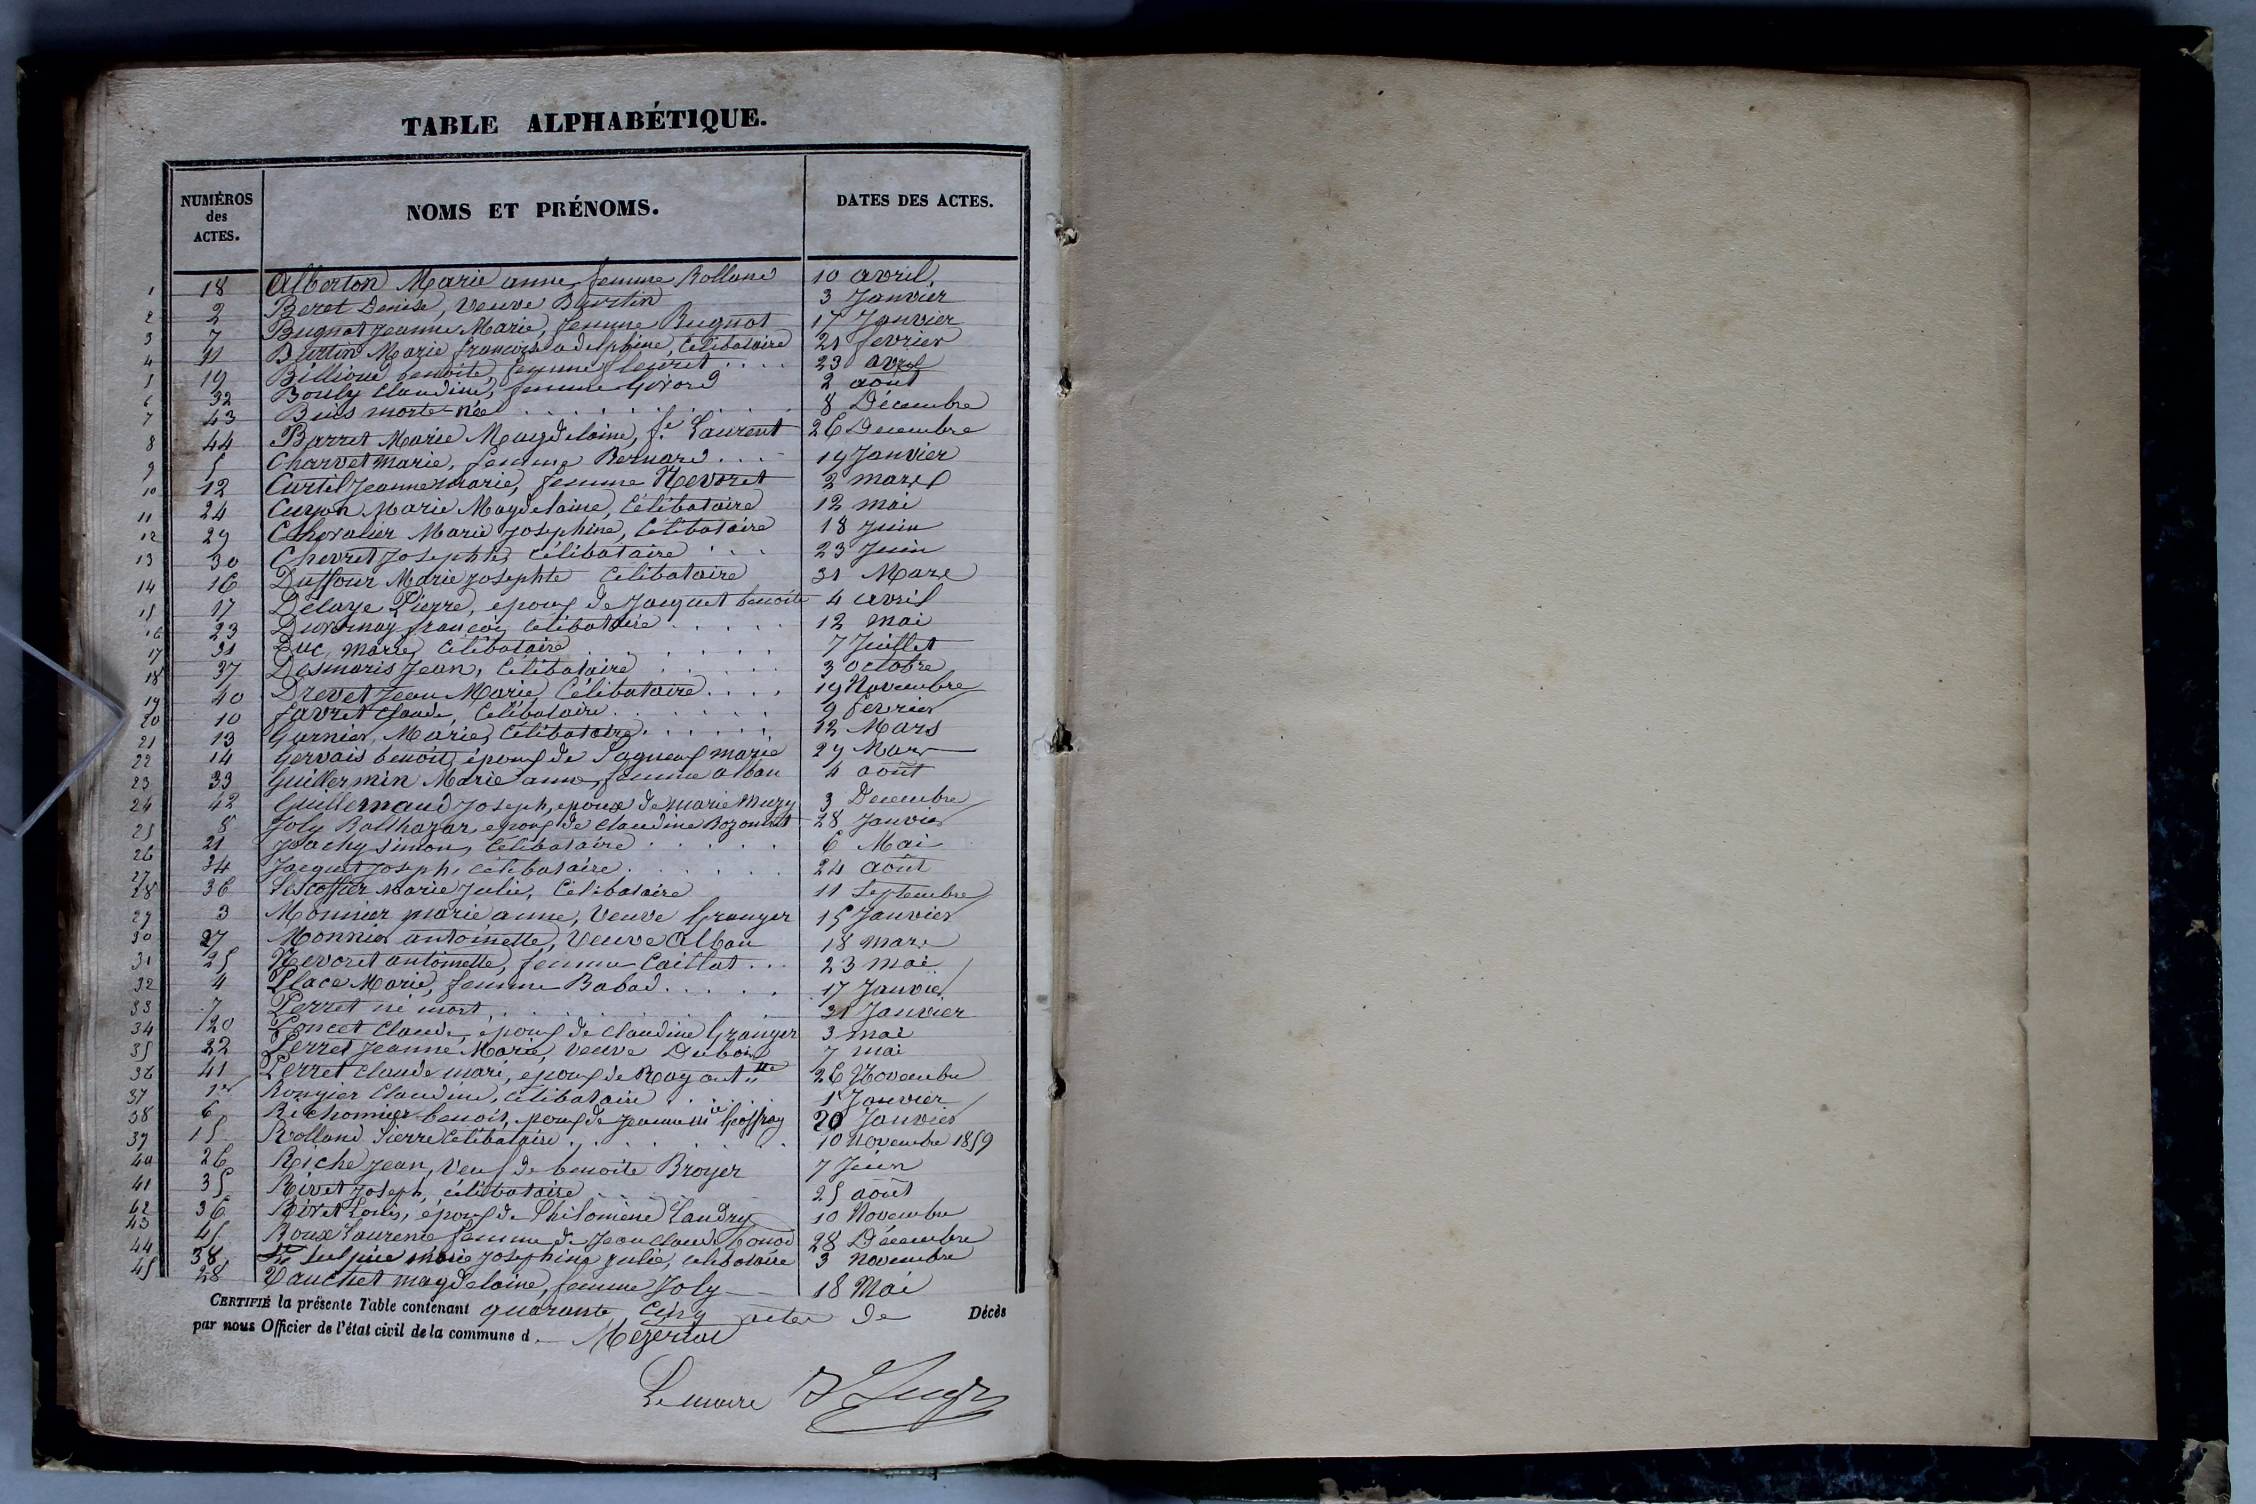 TABLE ALPHABÉTIQUE.
NUMÉROS des ACTES. NOMS ET PRÉNOMS. DATES DES ACTES.
1 18 Alberton Marie anne, femme Rolland 10 avril
2 2 Beret Denise, veuve Burtin 3 Janvier
3 7 Bugnot Jeanne Marie, femme Bugnot 17 Janvier
4 11 Burtin Marie françoise adelphine, Célibataire 21 fevrier
5 19 Billioud benoite, femme fleuret .... 23 avril
6 32 Bouly Claudine, femme Givord 2 août
7 43 Buis morte-née ........ 8 Décembre
8 44 Barret Marie Magdelaine, fe Laurent 26 Decembre
9 5 Charvet marie, femme Bernard .... 19 Janvier
10 12 Curtil Jeanne marie, femme Nevoret 2 mars
11 24 Curson Marie Magdelaine, Célibataire 12 mai
12 29 Chevalier Marie Josephine, Célibataire 18 Juin
13 30 Chevret Josephte, Célibataire ... 23 Juin
14 16 Duffour Marie Josephte Célibataire 31 Mars
15 17 Delaye Pierre, epoux de Jacquet benoite 4 avril
16 23 Duvernay françois, Célibataire ..... 12 mai
17 31 Duc Marie, Célibataire ...... 7 Juillet
18 37 Desmaris Jean, Célibataire ..... 3 octobre
19 40 Drevet Jean Marie, Célibataire .... 19 Novembre
20 10 favret Claude, Célibataire ...... 9 fevrier
21 13 Garnier, Marie, Célibataire ...... 12 Mars
22 14 Gervais benoit, époux de Pagneux marie 29 Mars
23 33 Guillermin Marie anne, femme alban 4 août
24 42 Guillemaud Joseph, epoux de marie Mury 3 Decembre
25 8 Joly Balthazar, epoux de Claudine Bozonnet 28 Janvier
26 21 Joachy Simon, Célibataire ..... 6 Mai
27 34 Jacquet Joseph, célibataire ...... 24 août
28 36 Lescoffier Marie Julie, Célibataire 11 Septembre
29 3 Monnier marie anne, Veuve Granger 15 Janvier
30 27 Monnier antoinette, Veuve Alban 18 mars
31 25 Nevoret antoinette, femme Caillat ... 23 mai
32 4 Place Marie, femme Babad ..... 17 Janvier
33 7 Perret né mort ..... 31 Janvier
34 20 Poncet Claude, époux de Claudine Granger 3 mai
35 22 Perret Jeanne Marie, veuve Dubois 7 mai
36 41 Perret Claude mari, epoux de Ray antte 26 Novembre
37 1er Rongier Claudine, célibataire .... 1er Janvier
38 6 Richonnier benoit, epoux de Jeanne mie Geoffray 20 Janvier
39 15 Rolland Pierre Célibataire ...... 10 Novembre 1859
40 26 Riche Jean, Veuf de benoite Broyer 7 Juin
41 35 Rivet Joseph, célibataire 25 août
42 36 Rivet Louis, époux de Philomène Landry 10 Novembre
43 45 Roux Laurence femme de Jean Claude 28 Décembre
44 38 St Sulpice marie Josephine Julie, célibataire 3 Novembre
45 28 Vauchet magdelaine, femme Joly 18 Mai
CERTIFIÉ la présente Table contenant quarante Cinq actes de Décès
par nous Officier de l'état civil de la commune d Mezeriat
Le maire